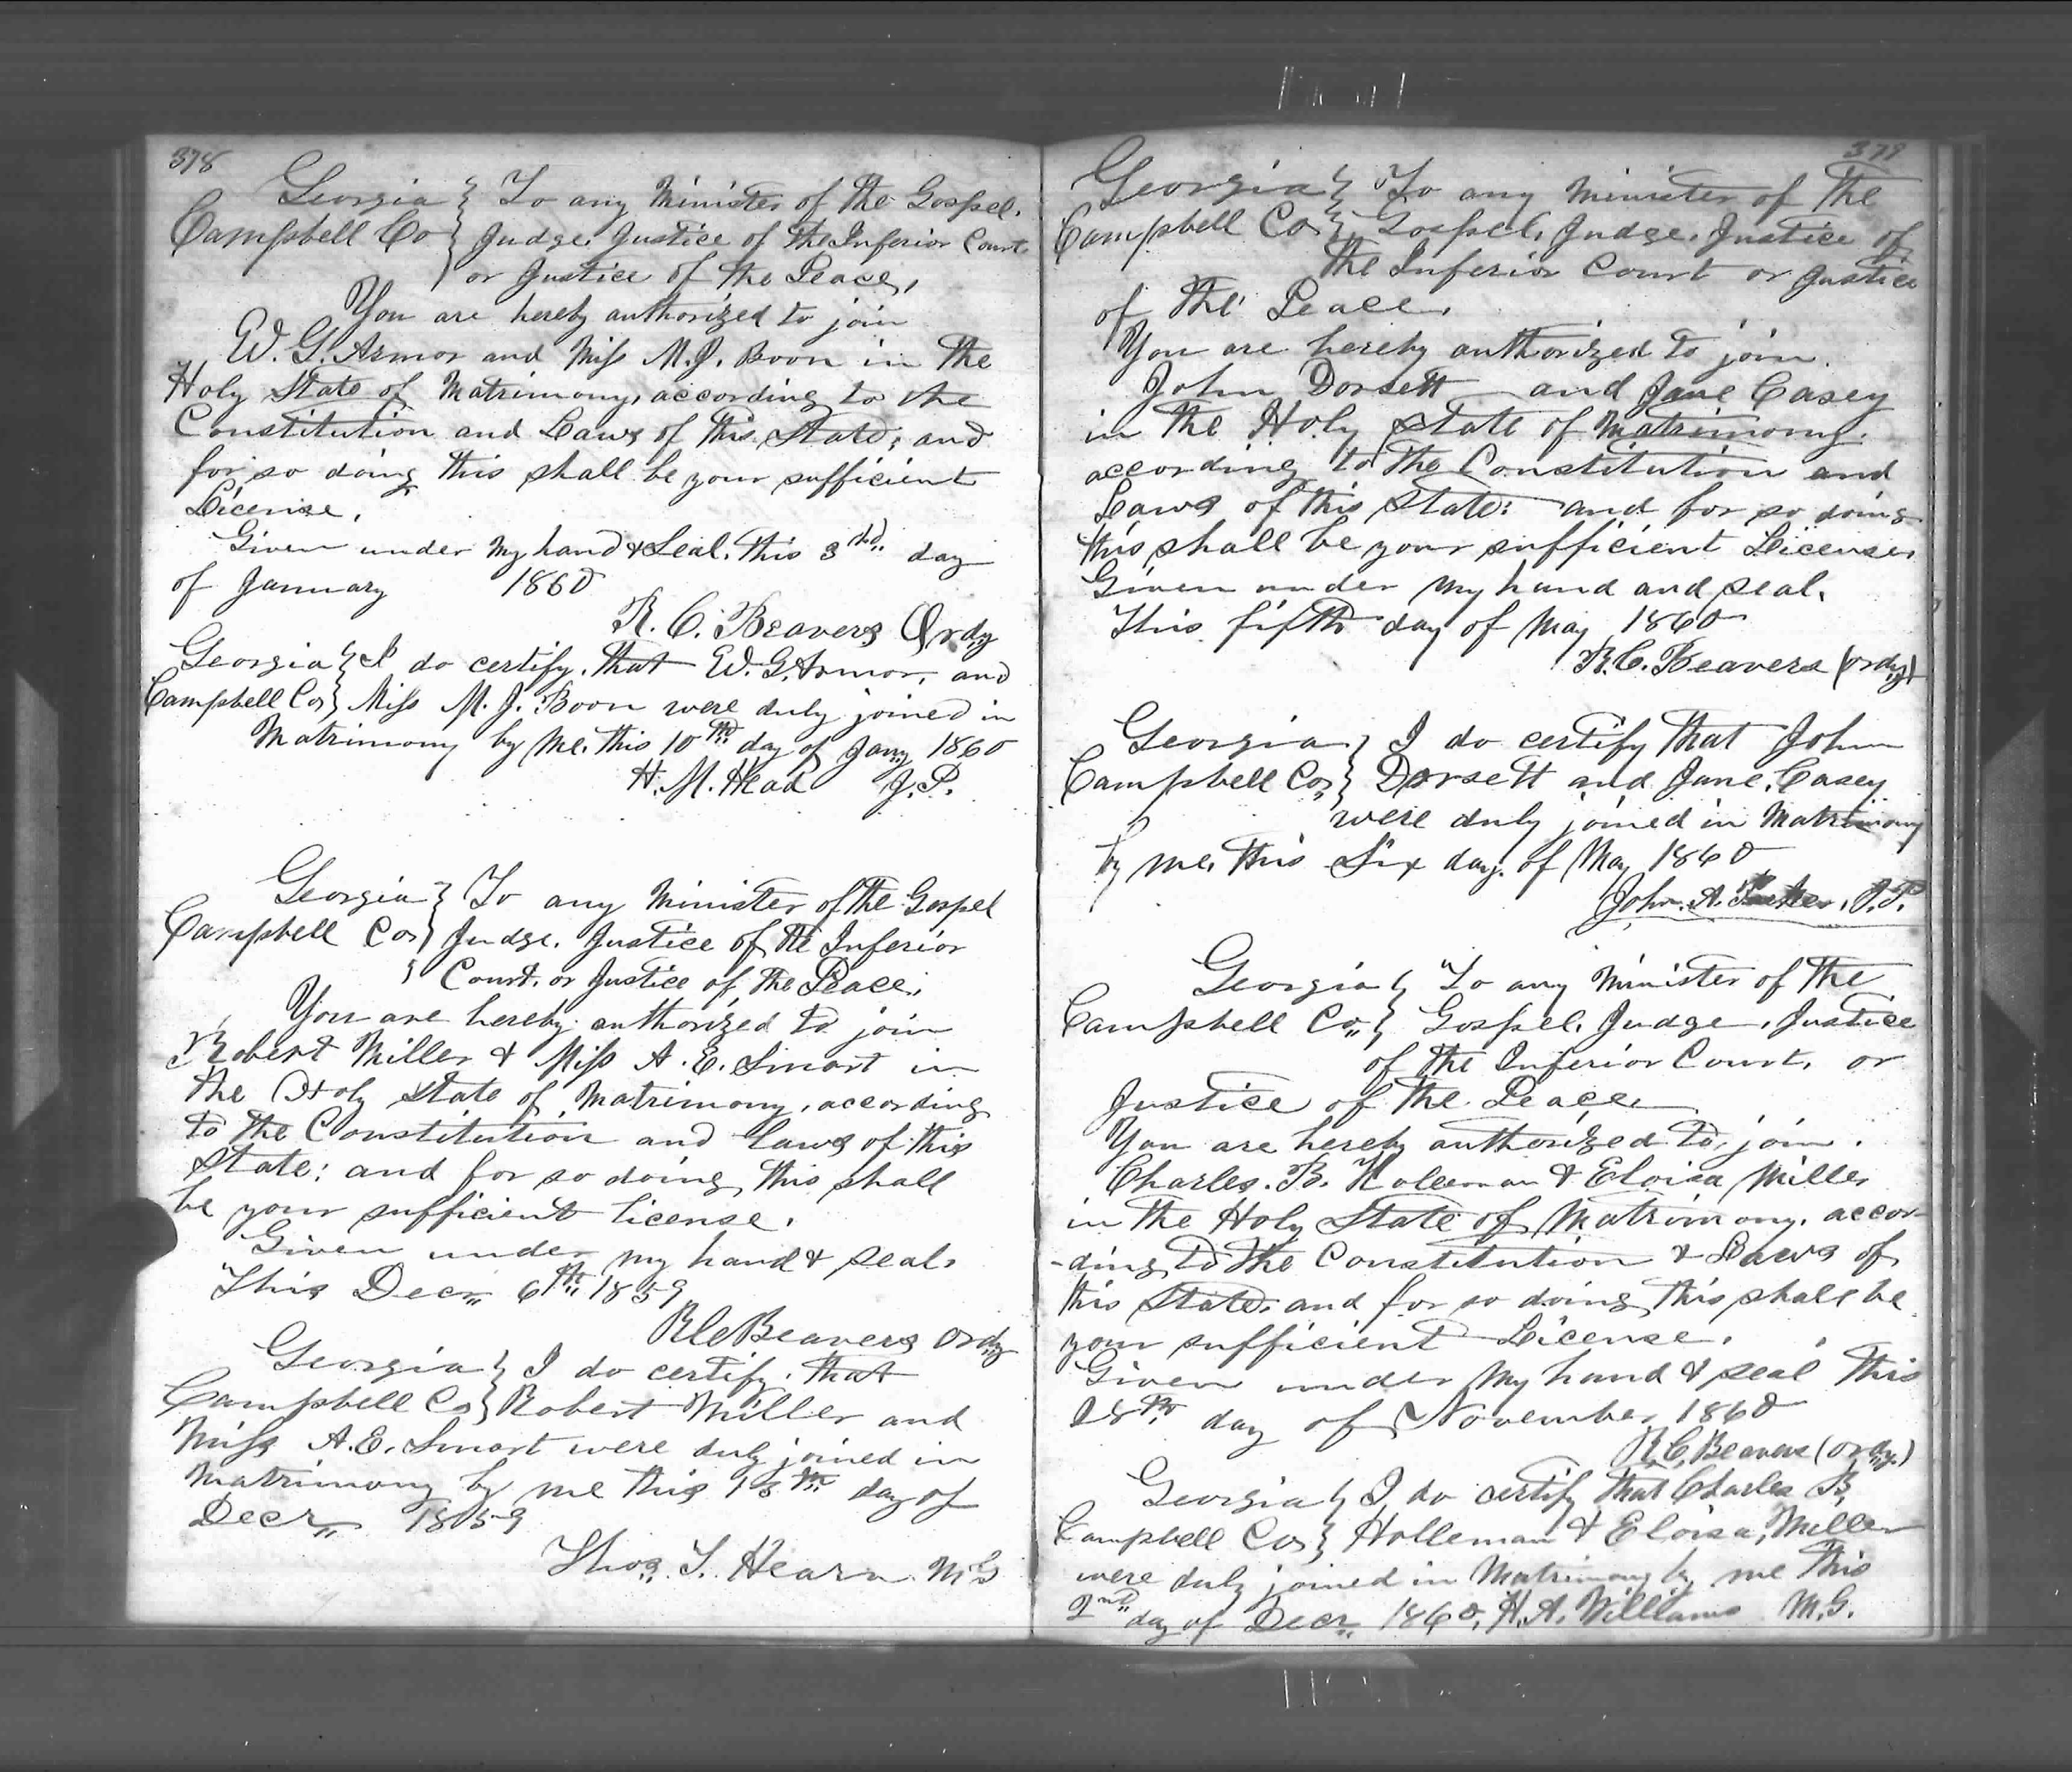 378
Georgia } To any Minister of the Gospel.
Campbell Co } Judge. Justice of the Inferior Court.
or Justice of the Peace,
You are hereby authorized to join
W. G. Armor and Miss M. J. Boon in the
Holy State of Matrimony, according to the
Constitution and Laws of this State; and
for so doing this shall be your sufficient
License.
Given under my hand & Seal. this 3rd day
of January 1860
R. C. Beavers Ordy
Georgia } I do certify. that W. G. Armor, and
Campbell Co } Miss M. J. Boon were duly joined in
Matrimony by me. this 10th day of Jany 1860
H. M. Head J. P.
Georgia } To any Minister of the Gospel
Campbell Co } Judge. Justice of the Inferior
} Court. or Justice of the Peace.
You are hereby authorized to join
Robert Miller & Miss A. E. Smart in
the Holy State of Matrimony, according
to the Constitution and laws of this
State: and for so doing, this shall
be your sufficient license.
Given under my hand & seal.
This Decr 6th 1859
R C Beavers Ordy
Georgia } I do certify. that
Campbell Co } Robert Miller and
Miss A. E. Smart were duly joined in
Matrimony by me this 13th day of
Decr 1859
Thos. T. Hearn M G
379
Georgia } To any Minister of the
Campbell Co } Gospel. Judge. Justice of
the Inferior Court or Justice
of the Peace.
You are hereby authorized to join
John Dorsett and Jane Casey
in the Holy State of Matrimony.
according to the Constitution and
Laws of this State: and for so doing
this shall be your sufficient License.
Given under my hand and seal.
This fifth day of May 1860
R. C. Beavers (Ordy)
Georgia } I do certify that John
Campbell Co } Dorsett and Jane Casey
were duly joined in Matrimony
by me. this Six day. of May 1860
John. A. J. P.
Georgia } To any Minister of the
Campbell Co } Gospel. Judge. Justice
of the Inferior Court. or
Justice of the Peace
You are hereby authorized to join.
Charles. B. Holleman & Eloisa Miller
in the Holy State of Matrimony. accor-
-ding to the Constitution & Laws of
this State: and for so doing this shall be
your sufficient License.
Given under my hand & seal this
28th day of November 1860
R. C. Beavers (Ordy)
Georgia } I, do certify that Charles B
Campbell Co } Holleman & Eloisa, Miller
were duly joined in Matrimony by me this
2nd day of Decr 1860. H. A. Williams M. G.